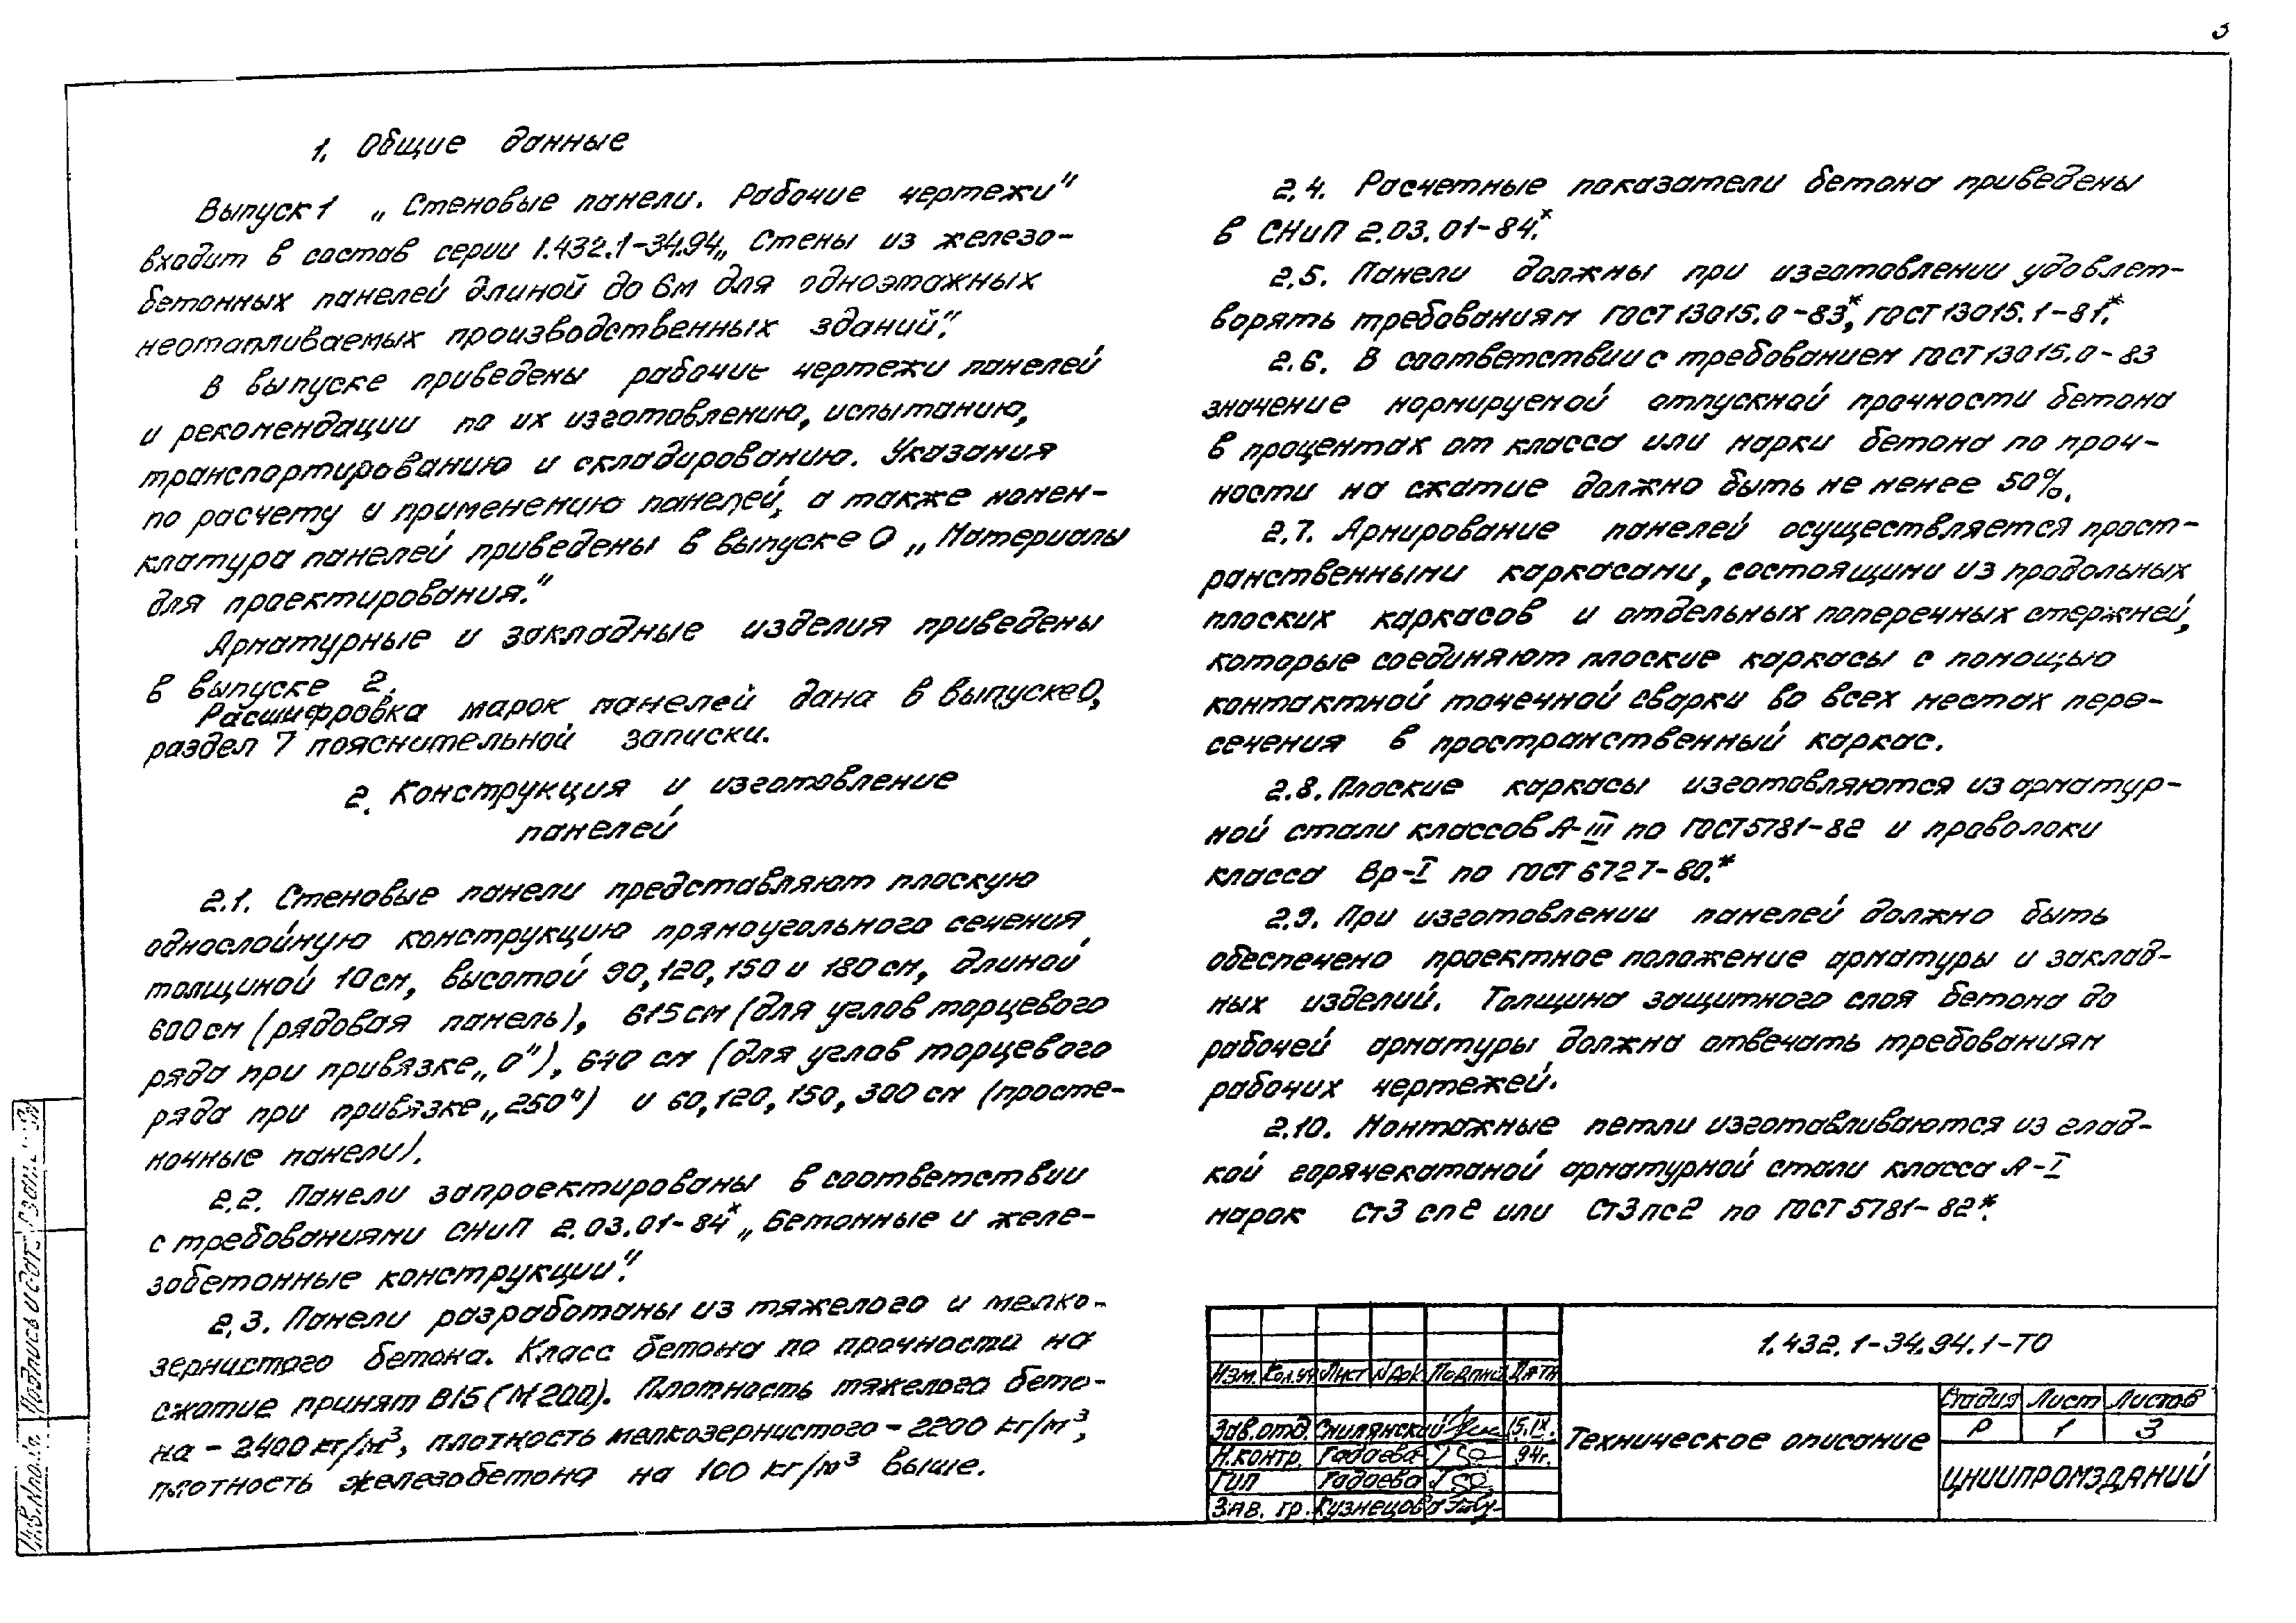 3
1. Общие данные
Выпуск 1 „Стеновые панели. Рабочие чертежи"
входит в состав серии 1.432.1-34.94 „Стены из железо-
бетонных панелей длиной до 6м для одноэтажных
неотапливаемых производственных зданий".
В выпуске приведены рабочие чертежи панелей
и рекомендации по их изготовлению, испытанию,
транспортированию и складированию. Указания
по расчету и применению панелей, а также номен-
клатура панелей приведены в выпуске 0 „Материалы
для проектирования."
Арматурные и закладные изделия приведены
в выпуске 2.
Расшифровка марок панелей дана в выпуске 0,
раздел 7 пояснительной записки.
2. Конструкция и изготовление
панелей
2.1. Стеновые панели представляют плоскую
однослойную конструкцию прямоугольного сечения
толщиной 10см, высотой 90, 120, 150 и 180см, длиной
600см (рядовая панель), 615см (для углов торцевого
ряда при привязке „0"), 640 см (для углов торцевого
ряда при привязке „250") и 60, 120, 150, 300 см (просте-
ночные панели).
2.2. Панели запроектированы в соответствии
с требованиями СНиП 2.03.01-84* „Бетонные и желе-
зобетонные конструкции".
2.3. Панели разработаны из тяжелого и мелко-
зернистого бетона. Класс бетона по прочности на
сжатие принят В15 (М200). Плотность тяжелого бето-
на - 2400 кг/м³, плотность мелкозернистого - 2200 кг/м³,
плотность железобетона на 100 кг/м³ выше.
2.4. Расчетные показатели бетона приведены
в СНиП 2.03.01-84*.
2.5. Панели должны при изготовлении удовлет-
ворять требованиям ГОСТ 13015.0-83*, ГОСТ 13015.1-81*.
2.6. В соответствии с требованием ГОСТ 13015.0-83
значение нормируемой отпускной прочности бетона
в процентах от класса или марки бетона по проч-
ности на сжатие должно быть не менее 50%.
2.7. Армирование панелей осуществляется прост-
ранственными каркасами, состоящими из продольных
плоских каркасов и отдельных поперечных стержней,
которые соединяют плоские каркасы с помощью
контактной точечной сварки во всех местах пере-
сечения в пространственный каркас.
2.8. Плоские каркасы изготовляются из арматур-
ной стали классов А-III по ГОСТ 5781-82 и проволоки
класса Вр-I по ГОСТ 6727-80.*
2.9. При изготовлении панелей должно быть
обеспечено проектное положение арматуры и заклад-
ных изделий. Толщина защитного слоя бетона до
рабочей арматуры должна отвечать требованиям
рабочих чертежей.
2.10. Монтажные петли изготавливаются из глад-
кой горячекатаной арматурной стали класса А-I
марок Ст3 сп2 или Ст3пс2 по ГОСТ 5781-82*.
1.432.1-34.94.1-ТО
Изм. Кол.уч Лист №Док Подпись Дата
Зав.отд. Смилянский 15.IX.
Н.контр. Гадаева 94г.
ГИП Гадаева
Зав. гр. Кузнецова
Техническое описание
Стадия Лист Листов
Р 1 3
ЦНИИПРОМЗДАНИЙ
Подпись и дата
Инв.№